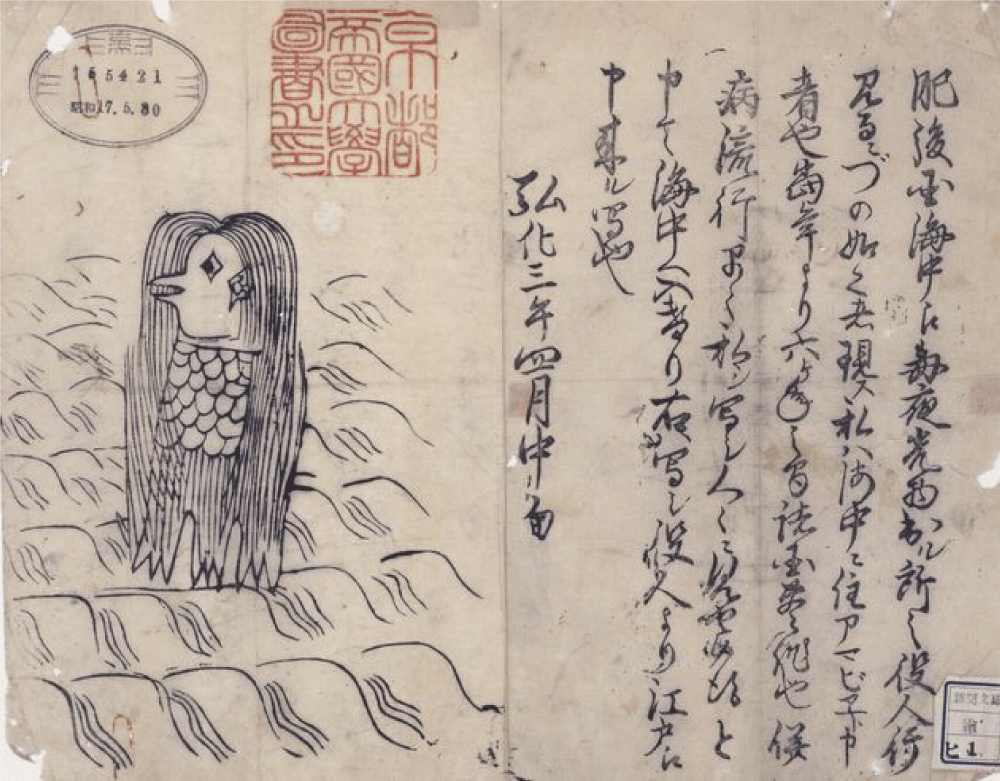 肥後国海中え毎夜光物出ル所之役人行
見るニづの如く者現ス私ハ海中ニ住アマビヱト申
者也當年より六ヶ年之間諸国豊作也併
病流行早々私シ写シ人々ニ見せ候得と
申て海中へ入けり右写シ役人より江戸え
申来ル写也
弘化三年四月中旬
京都
帝國大學
圖書之印
165421
昭和17.5.30
新聞文庫
繪
ヒ1